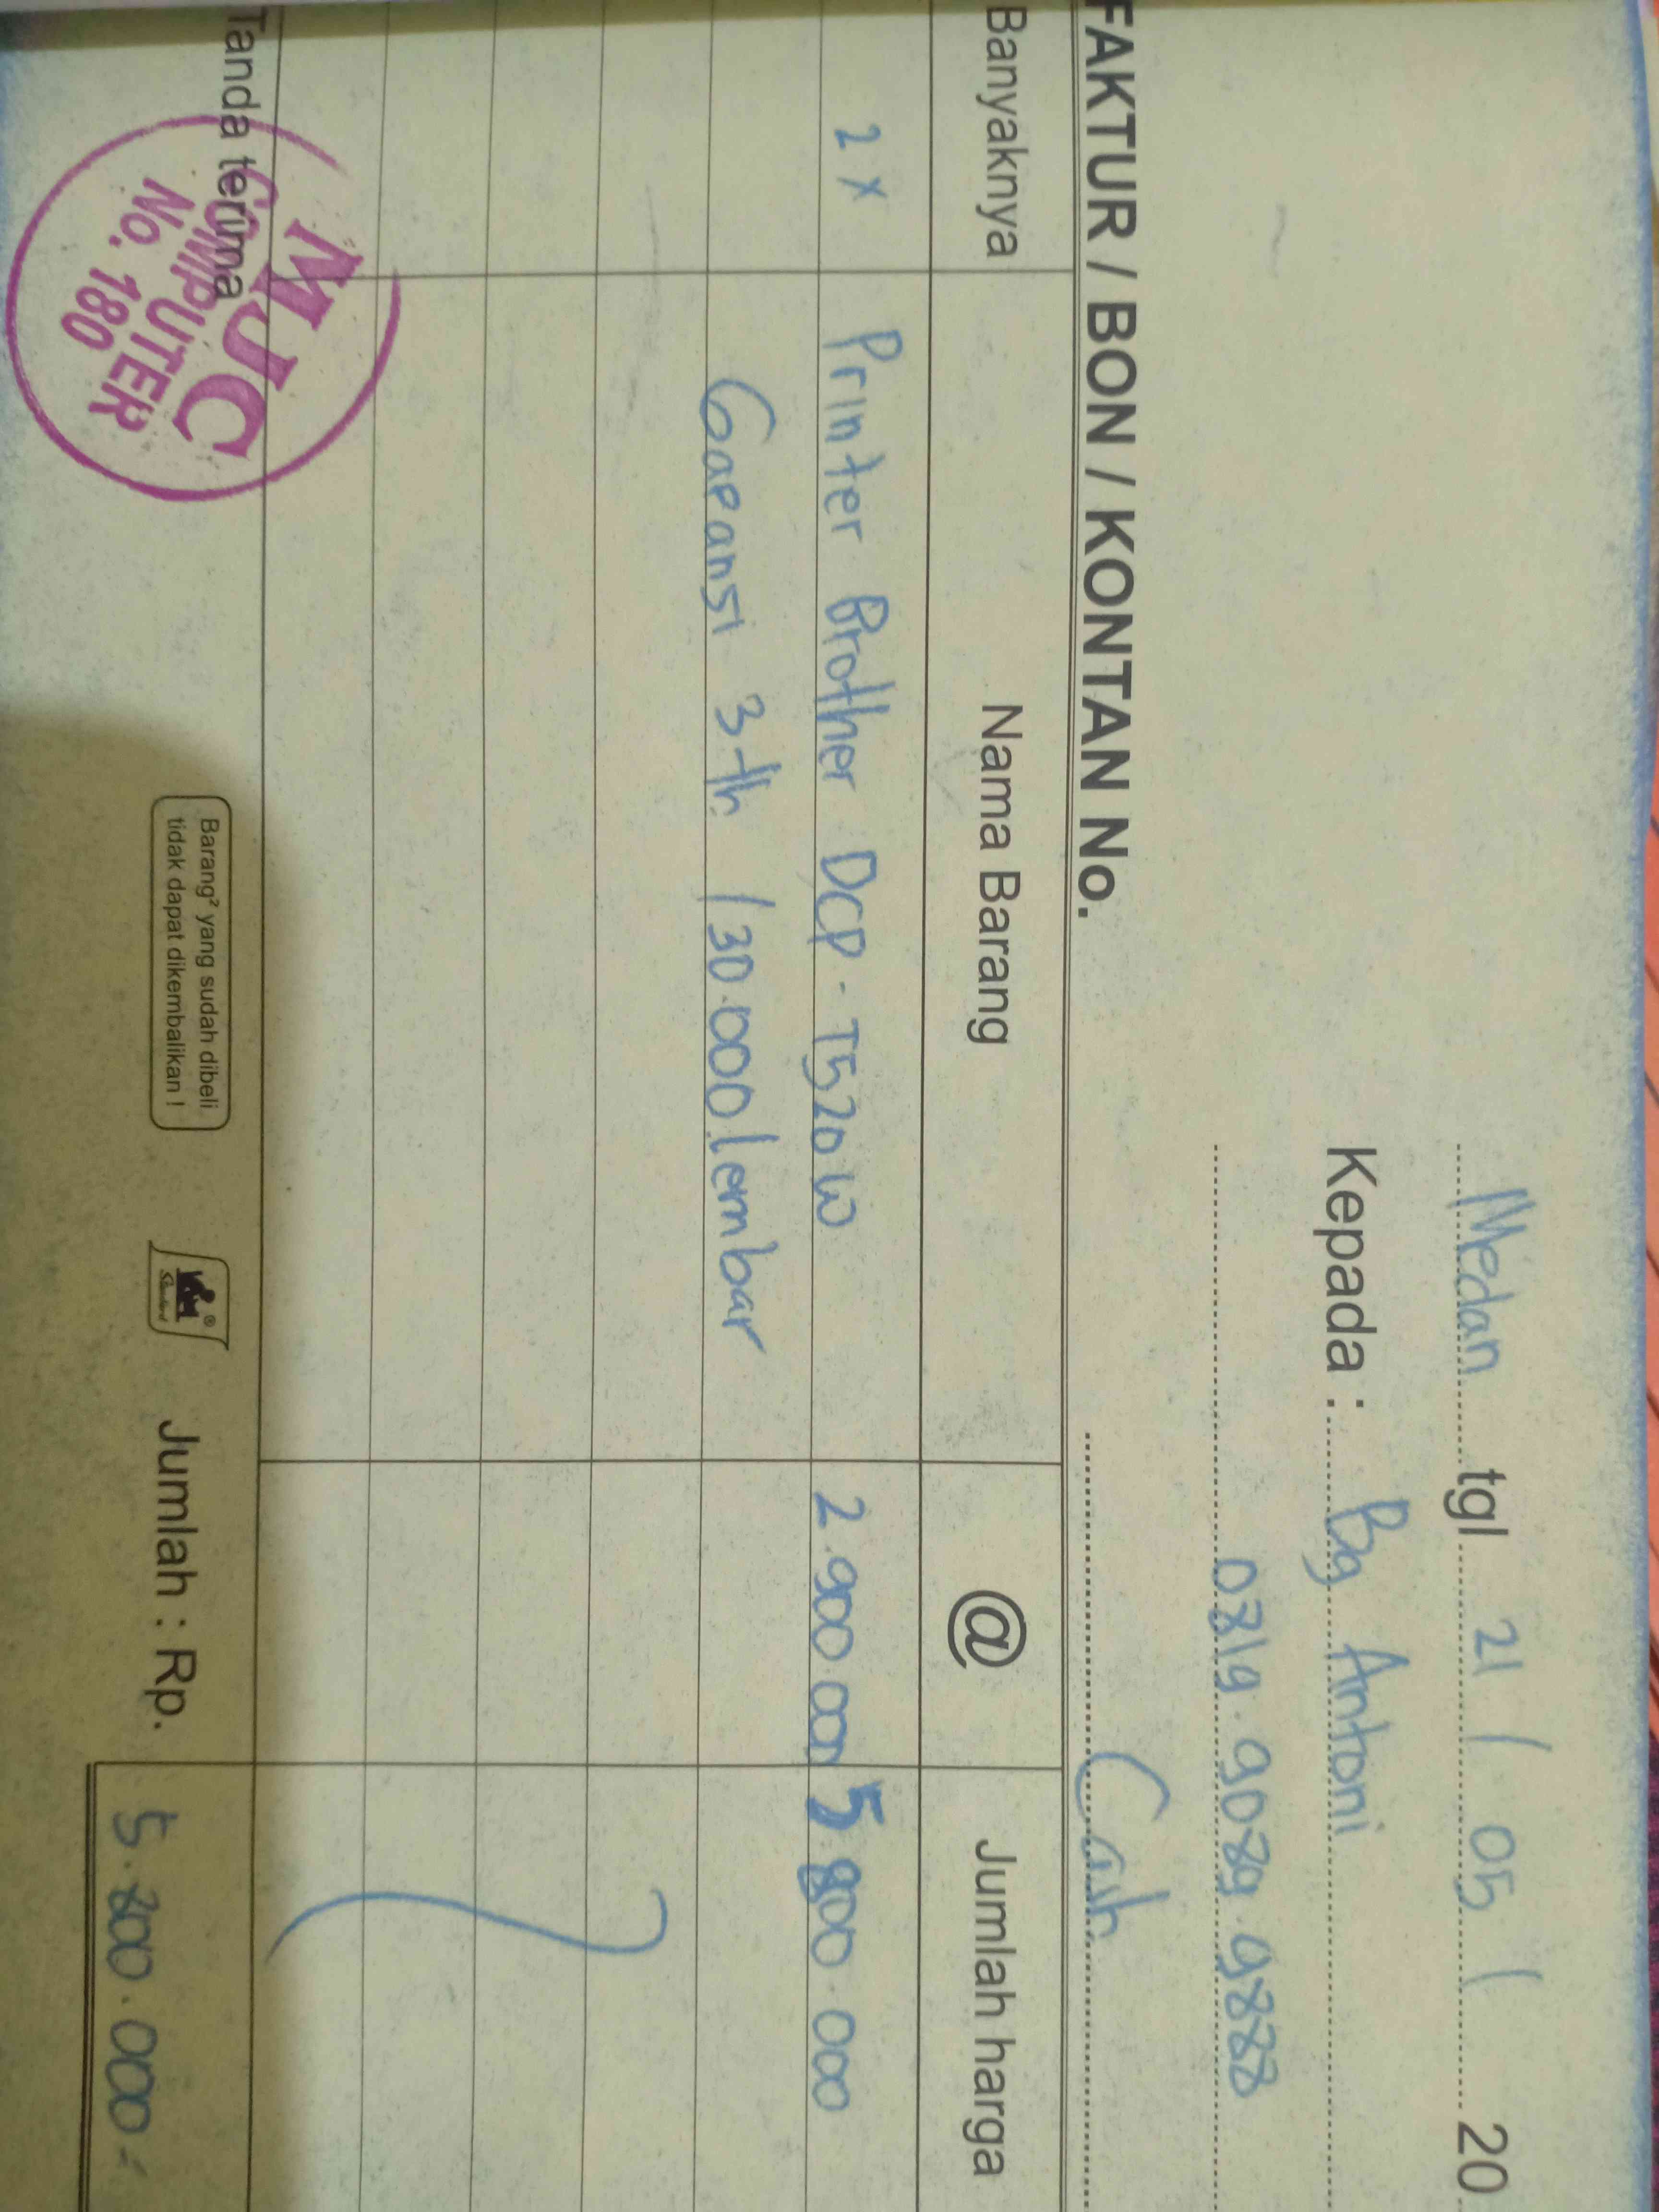 Medan tgl 21 / 05 / 20
Kepada : Bg Antoni
0819.9089.9888
Cash
FAKTUR / BON / KONTAN No.
Banyaknya Nama Barang @ Jumlah harga
2 x Printer Brother DCP - T520W 2.900.000 5.800.000
Garansi 3 th / 30.000 lembar
Tanda terima
MJC
COMPUTER
No. 180
Barang² yang sudah dibeli
tidak dapat dikembalikan !
Standard
Jumlah : Rp. 5.800.000.-